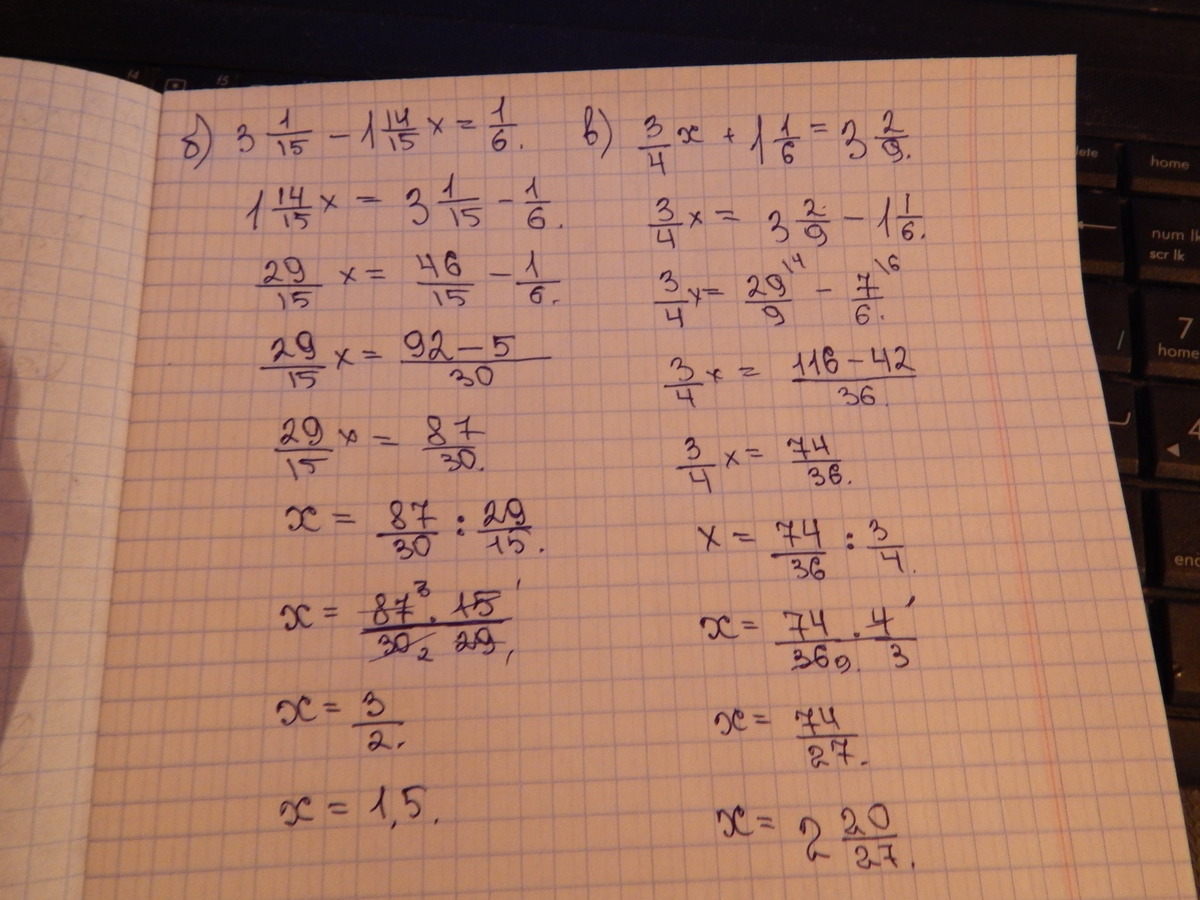 б) 3 1/15 - 1 14/15 x = 1/6.
1 14/15 x = 3 1/15 - 1/6.
29/15 x = 46/15 - 1/6.
29/15 x = 92-5/30
29/15 x = 87/30.
x = 87/30 : 29/15.
x = 87³ · 15¹/30₂ 29₁
x = 3/2.
x = 1,5.
в) 3/4 x + 1 1/6 = 3 2/9.
3/4 x = 3 2/9 - 1 1/6.
3/4 x = 29/9 \4 - 7/6 \6.
3/4 x = 116-42/36.
3/4 x = 74/36.
x = 74/36 : 3/4.
x = 74 · 4¹/36₉. 3
x = 74/27.
x = 2 20/27.
f4
f5
lete
home
num lk
scr lk
/
7
home
4
◄
end